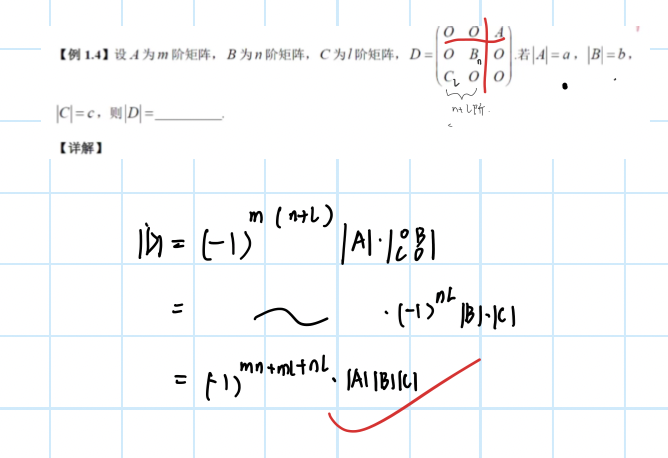 【例 1.4】设 A 为 m 阶矩阵，B 为 n 阶矩阵，C 为 l 阶矩阵，D = ( O O A ; O B_n O ; C_L O O ) 若 |A| = a，|B| = b，
n+L阶.
|C| = c，则 |D| = ________.
【详解】
|D| = (-1)^{m(n+L)} |A|·|O B ; C O|
= ～ ·(-1)^{nL} |B|·|C|
= (-1)^{mn+mL+nL}·|A||B||C|